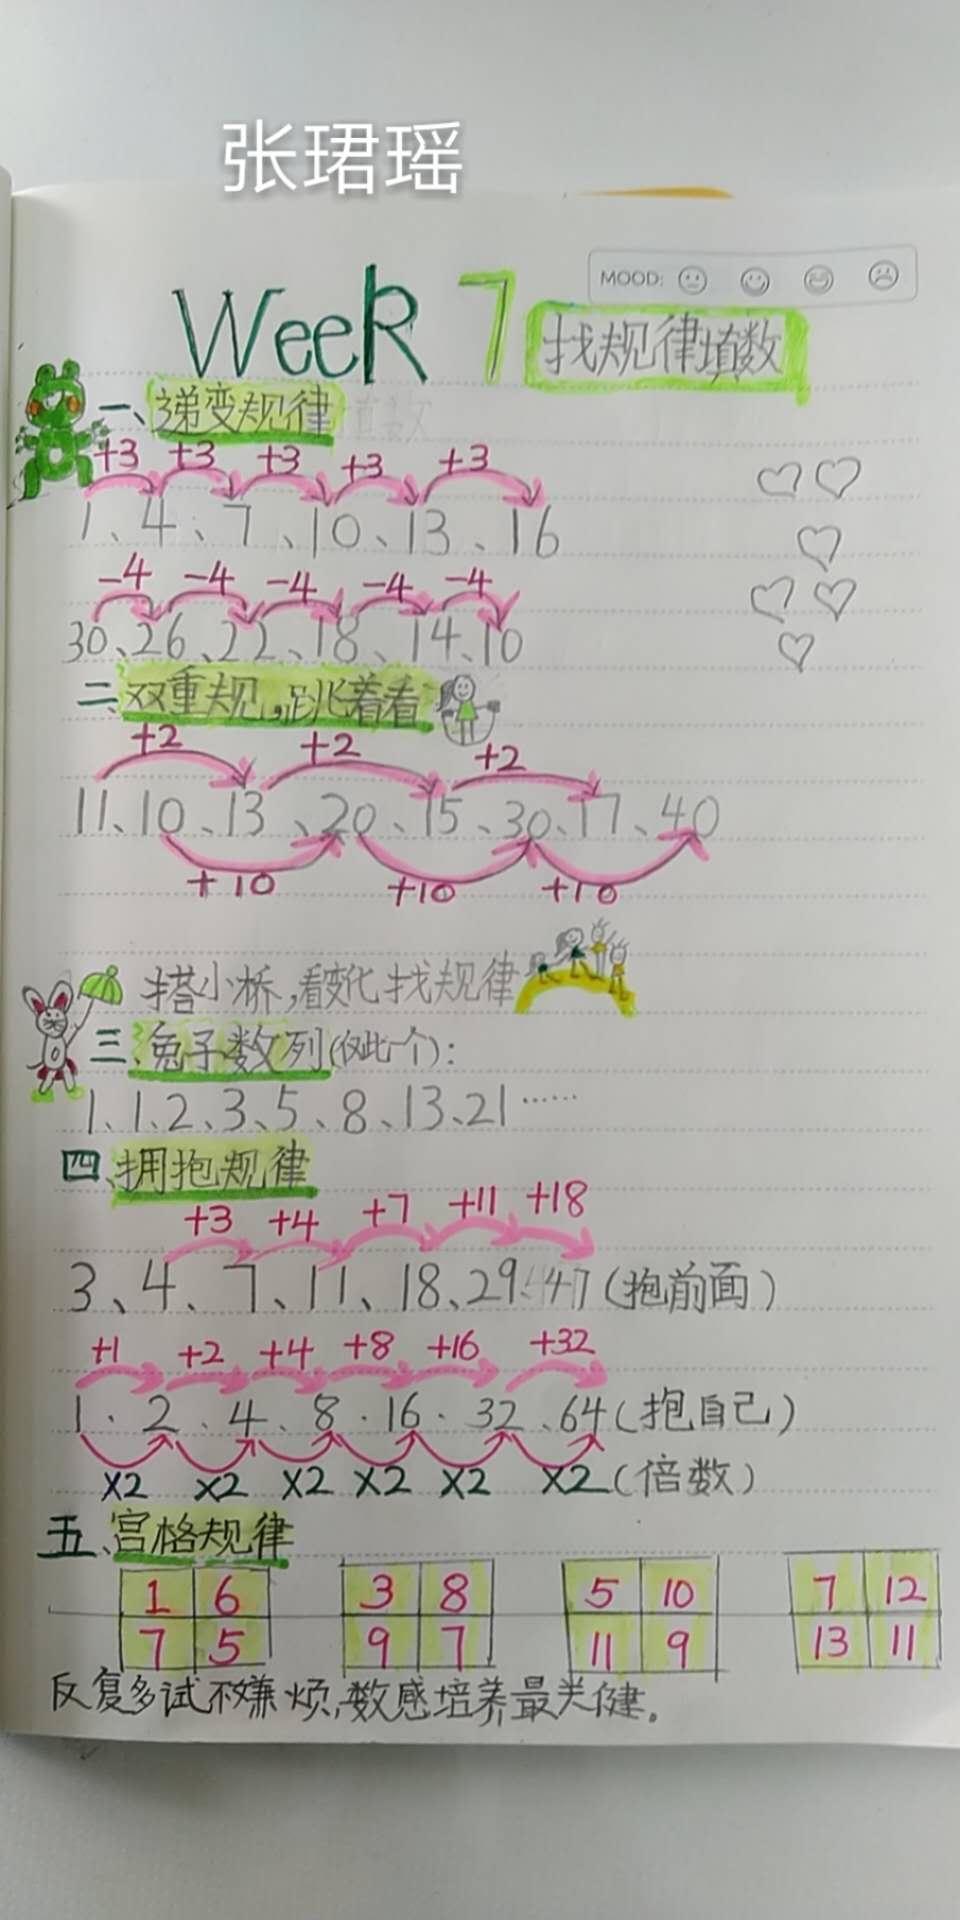 张珺瑶
MOOD:
Week 7 找规律填数
一、递变规律
+3 +3 +3 +3 +3
1、4、7、10、13、16
-4 -4 -4 -4 -4
30、26、22、18、14、10
二、双重规,跳着看
+2 +2 +2
11、10、13、20、15、30、17、40
+10 +10 +10
搭小桥,看变化找规律
三、兔子数列(仅此一个):
1、1、2、3、5、8、13、21……
四、拥抱规律
+3 +4 +7 +11 +18
3、4、7、11、18、29、47(抱前面)
+1 +2 +4 +8 +16 +32
1、2、4、8、16、32、64(抱自己)
×2 ×2 ×2 ×2 ×2 ×2(倍数)
五、宫格规律
1 6 3 8 5 10 7 12
7 5 9 7 11 9 13 11
反复多试不嫌烦,数感培养最关健。